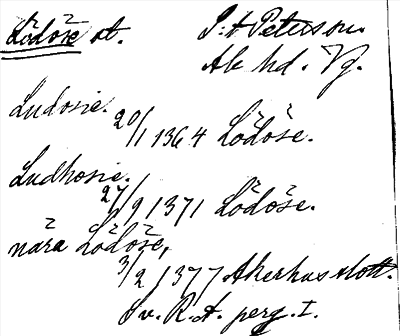 Lödöse st. P. A. Peterson.
Ale hd. Vg.
Ludosie.
20/1 1364 Lödöse.
Ludhosie.
27/9 1371 Lödöse.
nära Lödöse,
3/2 1377 Akerhus slott.
Sv. R. A. perg. I.